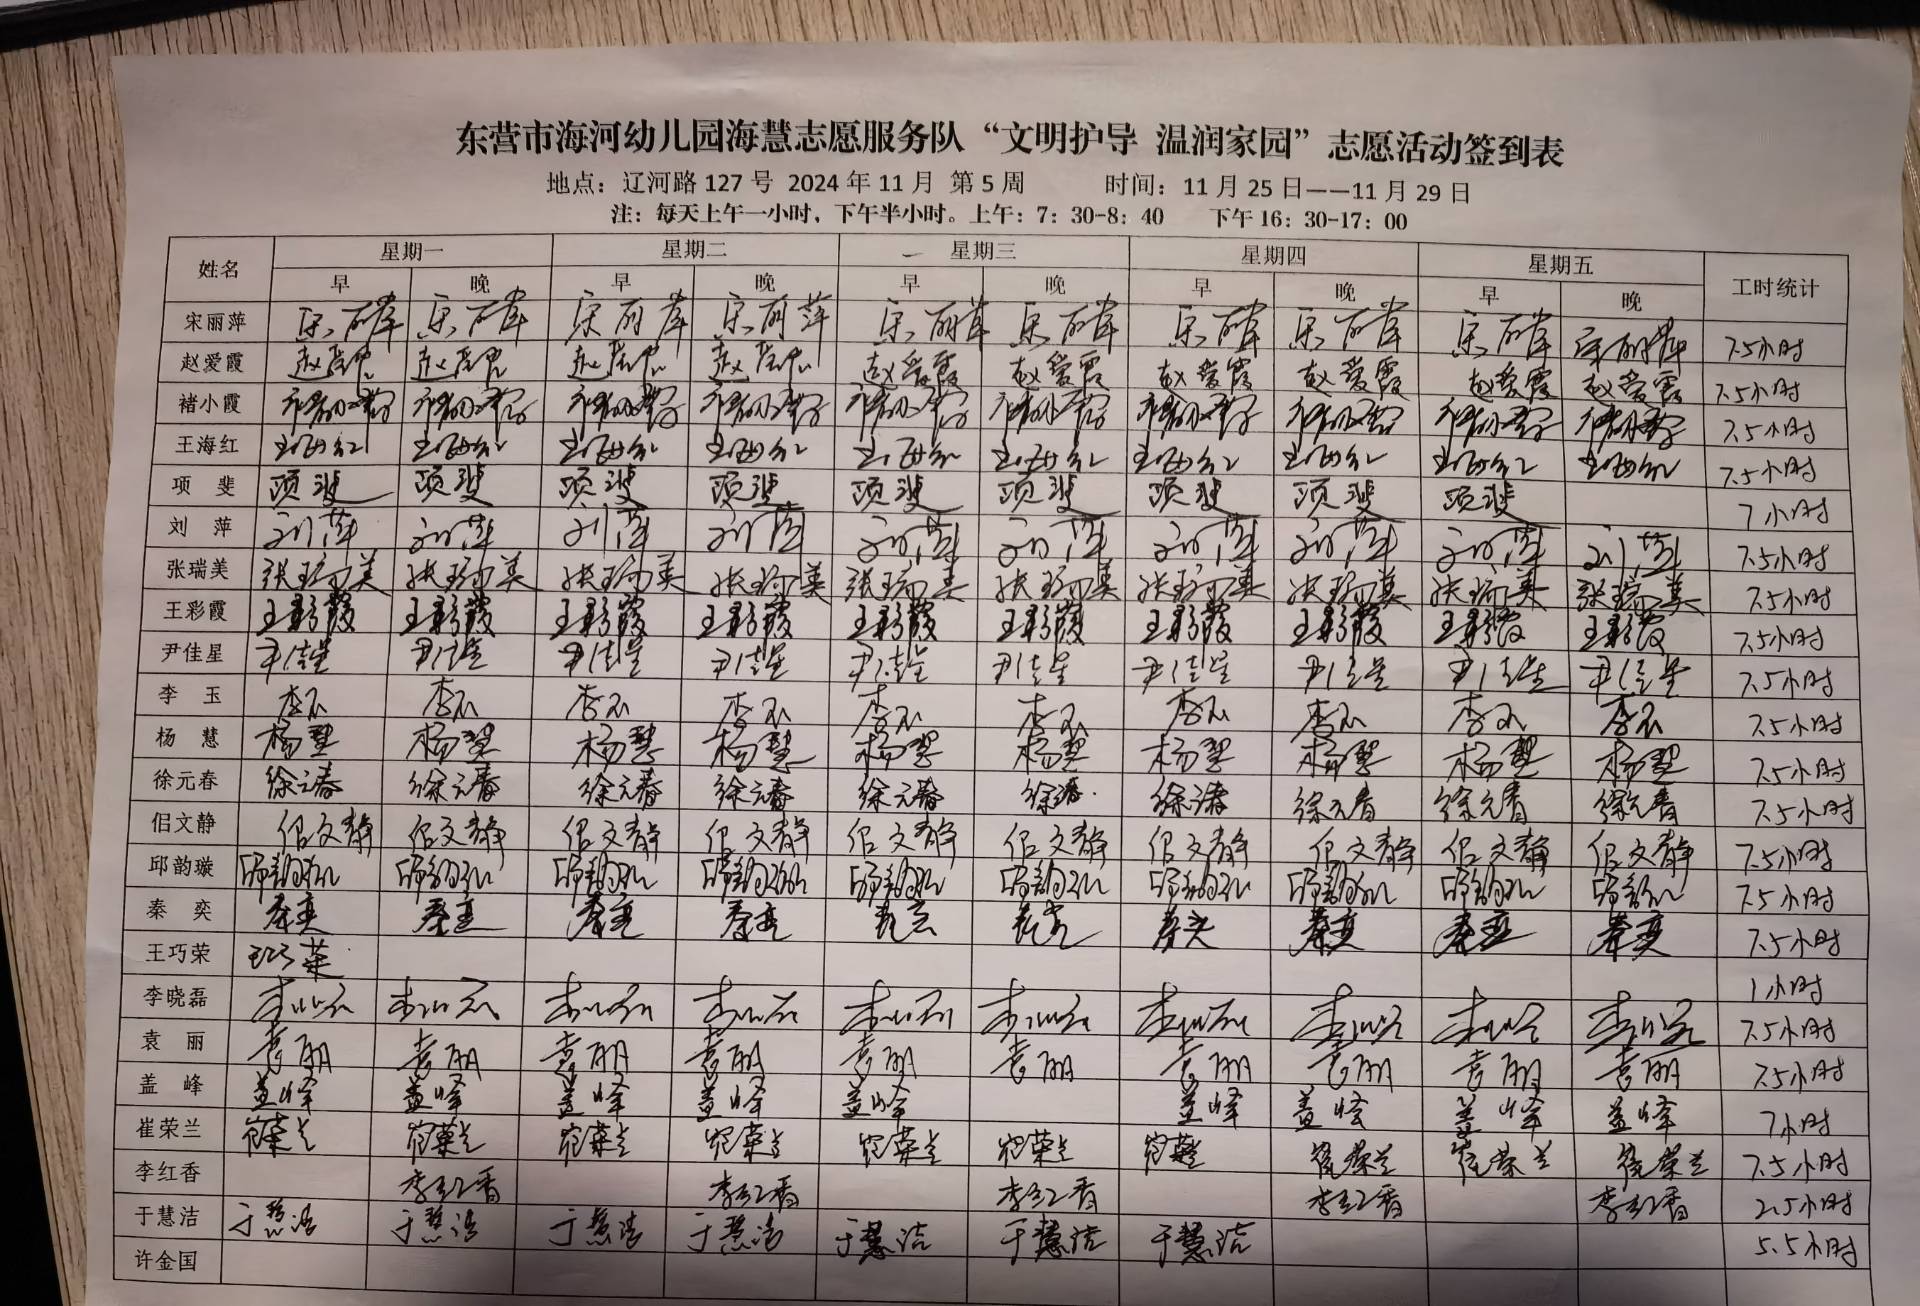 东营市海河幼儿园海慧志愿服务队“文明护导 温润家园”志愿活动签到表
地点：辽河路 127 号 2024 年 11 月 第 5 周 时间：11 月 25 日——11 月 29 日
注：每天上午一小时，下午半小时。上午：7：30-8：40 下午 16：30-17：00
姓名 星期一 星期二 星期三 星期四 星期五 工时统计
早 晚 早 晚 早 晚 早 晚 早 晚
宋丽萍 宋丽萍 宋丽萍 宋丽萍 宋丽萍 宋丽萍 宋丽萍 宋丽萍 宋丽萍 宋丽萍 宋丽萍 7.5小时
赵爱霞 赵爱霞 赵爱霞 赵爱霞 赵爱霞 赵爱霞 赵爱霞 赵爱霞 赵爱霞 赵爱霞 赵爱霞 7.5小时
褚小霞 褚小霞 褚小霞 褚小霞 褚小霞 褚小霞 褚小霞 褚小霞 褚小霞 褚小霞 褚小霞 7.5小时
王海红 王海红 王海红 王海红 王海红 王海红 王海红 王海红 王海红 王海红 王海红 7.5小时
项 斐 项斐 项斐 项斐 项斐 项斐 项斐 项斐 项斐 项斐 7小时
刘 萍 刘萍 刘萍 刘萍 刘萍 刘萍 刘萍 刘萍 刘萍 刘萍 刘萍 7.5小时
张瑞美 张瑞美 张瑞美 张瑞美 张瑞美 张瑞美 张瑞美 张瑞美 张瑞美 张瑞美 张瑞美 7.5小时
王彩霞 王彩霞 王彩霞 王彩霞 王彩霞 王彩霞 王彩霞 王彩霞 王彩霞 王彩霞 王彩霞 7.5小时
尹佳星 尹佳星 尹佳星 尹佳星 尹佳星 尹佳星 尹佳星 尹佳星 尹佳星 尹佳星 尹佳星 7.5小时
李 玉 李玉 李玉 李玉 李玉 李玉 李玉 李玉 李玉 李玉 李玉 7.5小时
杨 慧 杨慧 杨慧 杨慧 杨慧 杨慧 杨慧 杨慧 杨慧 杨慧 杨慧 7.5小时
徐元春 徐元春 徐元春 徐元春 徐元春 徐元春 徐元春 徐元春 徐元春 徐元春 徐元春 7.5小时
佀文静 佀文静 佀文静 佀文静 佀文静 佀文静 佀文静 佀文静 佀文静 佀文静 佀文静 7.5小时
邱韵璇 邱韵璇 邱韵璇 邱韵璇 邱韵璇 邱韵璇 邱韵璇 邱韵璇 邱韵璇 邱韵璇 邱韵璇 7.5小时
秦 奕 秦奕 秦奕 秦奕 秦奕 秦奕 秦奕 秦奕 秦奕 秦奕 秦奕 7.5小时
王巧荣 王巧荣 1小时
李晓磊 李晓磊 李晓磊 李晓磊 李晓磊 李晓磊 李晓磊 李晓磊 李晓磊 李晓磊 李晓磊 7.5小时
袁 丽 袁丽 袁丽 袁丽 袁丽 袁丽 袁丽 袁丽 袁丽 袁丽 袁丽 7.5小时
盖 峰 盖峰 盖峰 盖峰 盖峰 盖峰 盖峰 盖峰 盖峰 盖峰 7小时
崔荣兰 崔荣兰 崔荣兰 崔荣兰 崔荣兰 崔荣兰 崔荣兰 崔荣兰 崔荣兰 崔荣兰 崔荣兰 7.5小时
李红香 李红香 李红香 李红香 李红香 李红香 2.5小时
于慧洁 于慧洁 于慧洁 于慧洁 于慧洁 于慧洁 于慧洁 于慧洁 5.5小时
许金国